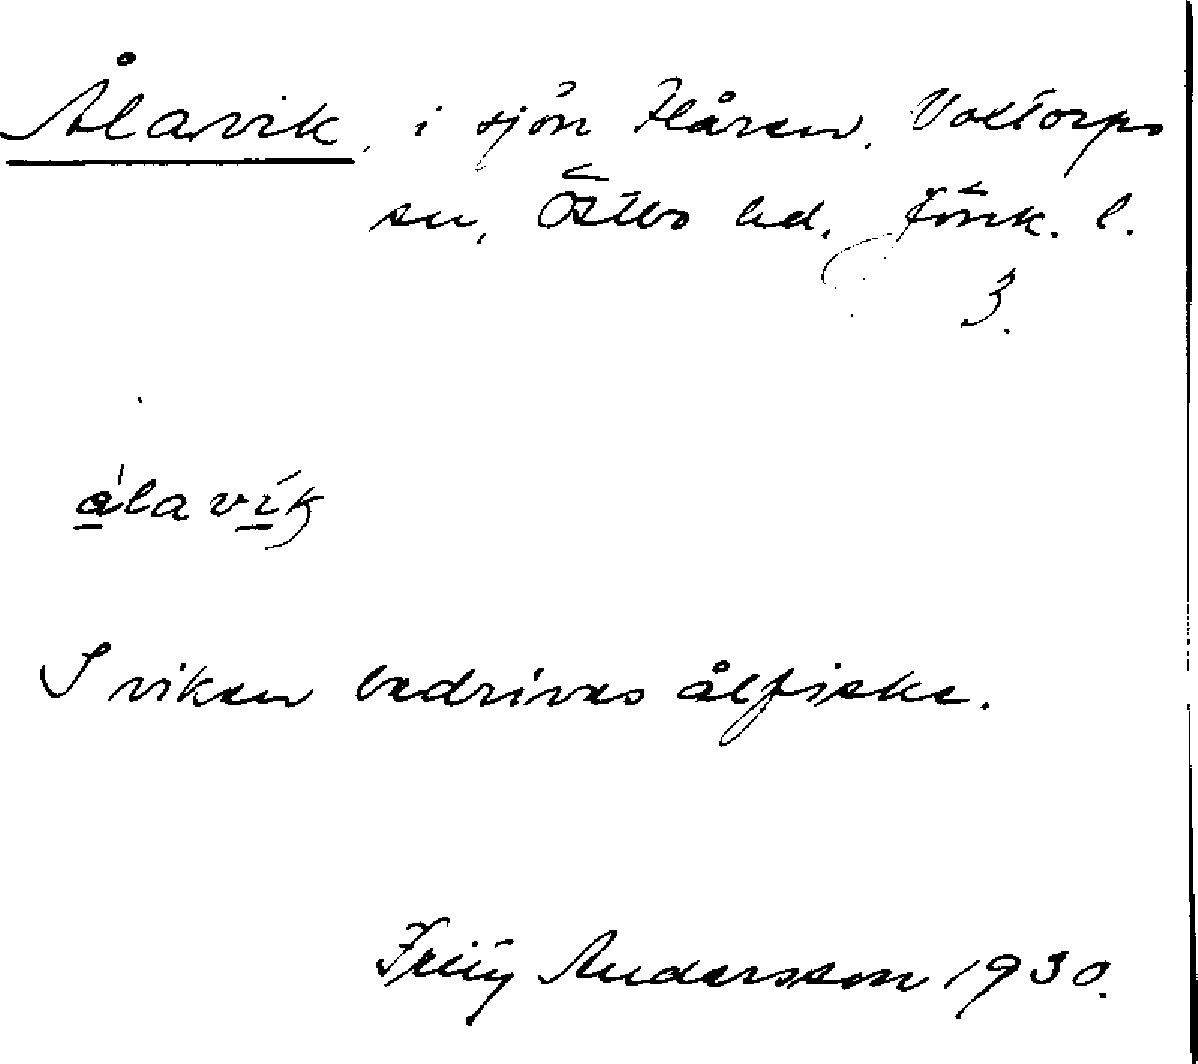 Ålavik, i sjön Flåren. Voxtorps
sn, Östbo hd. Jönk. l.
3.
álavík
I viken bedrives ålfiske.
Andersson 1930.